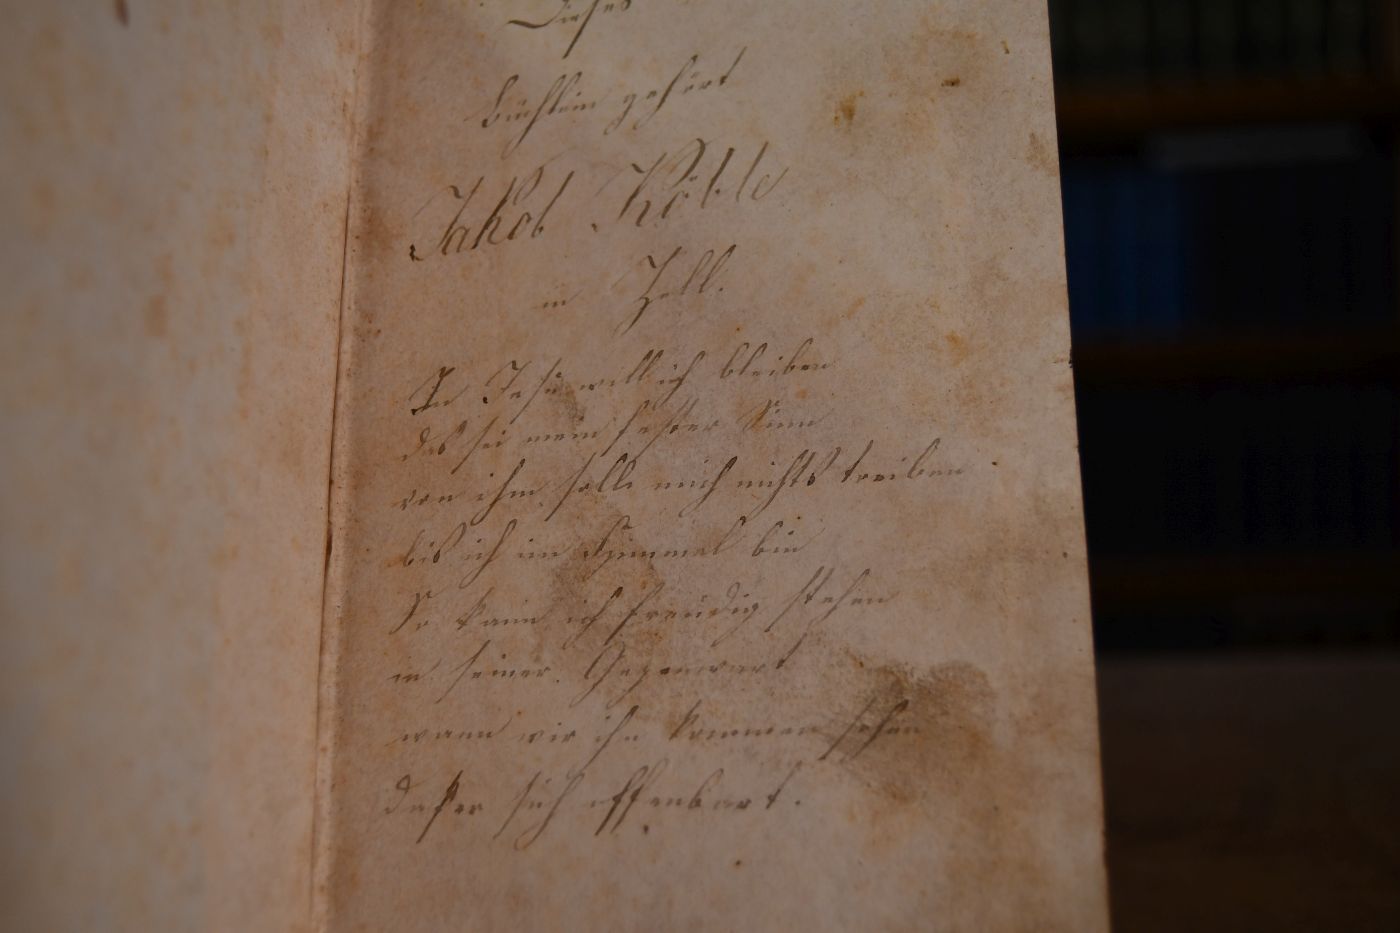 Dieses
Büchlein gehört
Jakob Röble
in Zell.
In Jesu will ich bleiben
das sei mein fester Sinn
von ihm solle mich nichts treiben
bis ich im Himmel bin
So kann ich freudig stehen
in seiner Gegenwart
wann wir ihn kommen sehen
daß er sich offenbart.